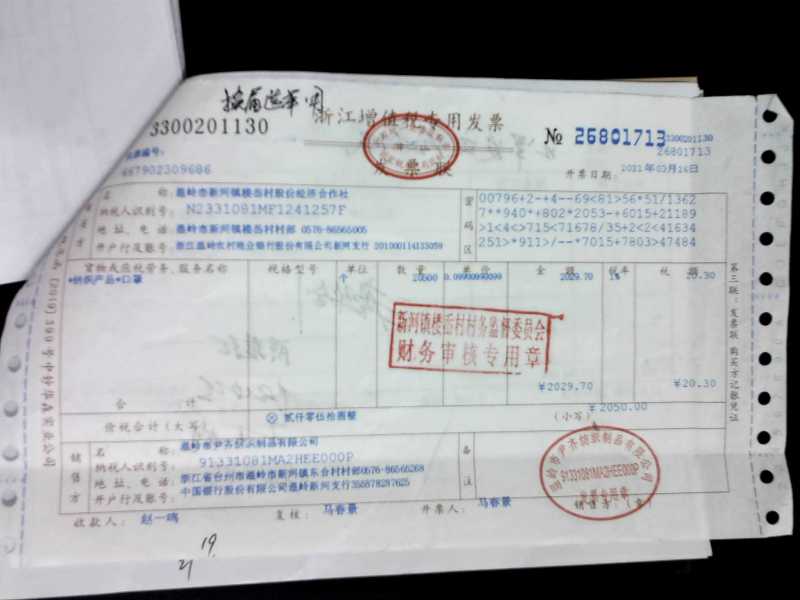 换届选举用
3300201130
浙江增值税专用发票
№ 26801713
3300201130
26801713
发票联
开票日期:
667902309686
名 称: 温岭市新河镇楼岙村股份经济合作社
纳税人识别号: N2331081MF1241257F
地 址、电 话: 温岭市新河镇楼岙村村部 0576-86565005
开户行及账号: 浙江温岭农村商业银行股份有限公司新河支行 201000114133059
密码区
00796+2-+4--69<81>56*51/1362
7**940*+802*2053-+6015+21189
>1<4<>715<71678/35+2<2<41634
251>*911>/--*7015+7803>47484
货物或应税劳务、服务名称 规格型号 单位 数量 单价 金额 税率 税额
*纺织产品*口罩 个 20500 0.09900990099 2029.70 1% 20.30
新河镇楼岙村村务监督委员会
财务审核专用章
合 计 ¥2029.70 ¥20.30
价税合计(大写) ⊗ 贰仟零伍拾圆整 (小写) ¥2050.00
销售方
名 称: 温岭市尹齐纺织制品有限公司
纳税人识别号: 91331081MA2HEE000P
地 址、电 话: 浙江省台州市温岭市新河镇东合村村部0576-86565268
开户行及账号: 中国银行股份有限公司温岭新河支行355878287625
备注
温岭市尹齐纺织制品有限公司
91331081MA2HEE000P
发票专用章
收款人: 赵一鸣 复核: 马春景 开票人: 马春景 销售方:(章)
第三联:发票联 购买方记账凭证
19
21